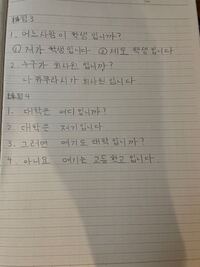 練習3
1. 어느사람이 학생입니까?
① 저가 학생입니다 ② 제 학생입니다
2. 누구가 회사원입니까?
나 라시가 회사원입니다
練習4
1. 대학은 어디입니까?
2. 대학은 저기입니다
3. 그러면 여기도 대학입니까?
4. 아니요 여기는 고등학교입니다.